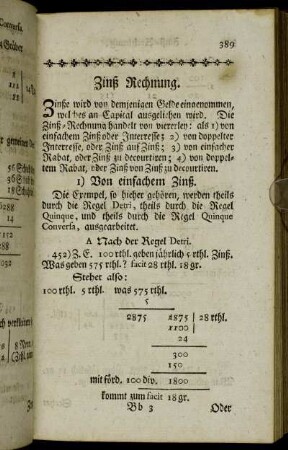 389
Zinß Rechnung.
Zinße wird von demjenigen Gelde eingenommen,
welches an Capital ausgeliehen wird. Die
Zinß-Rechnung handelt von viererley: als 1) von
einfachem Zinß oder Interresse; 2) von doppelter
Interresse, oder Zinß auf Zinß; 3) von einfacher
Rabat, oder Zinß zu decourtiren; 4) von doppel-
tem Rabat, oder Zinß von Zinß zu decourtiren.
1) Von einfachem Zinß.
Die Exempel, so hieher gehören, werden theils
durch die Regel Detri, theils durch die Regel
Quinque, und theils durch die Regel Quinque
Conversa, ausgearbeitet.
A Nach der Regel Detri.
452) Z. E. 100 rthl. geben jährlich 5 rthl. Zinß.
Was geben 575 rthl.? facit 28 rthl. 18 gr.
Stehet also:
100 rthl. 5 rthl. was 575 rthl.
5
2875 1875 | 28 rthl.
1100
24
300
150
mit förd. 100 div. 1800
kommt zum facit 18 gr.
Bb 3 Oder